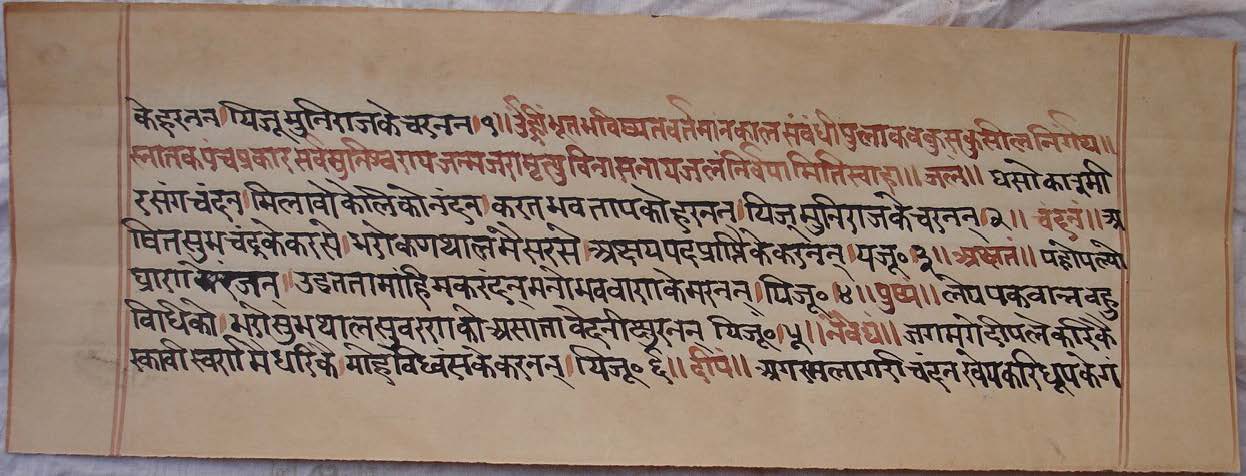 केहरनन।यजिजू मुनिराजके चरनन।१॥ उँह्रीं भूत भविष्यत वर्तमानकाल संबंधी पुलाक वकुस कुसील निर्ग्रंथ॥
स्नातक पंचप्रकार सर्वमुनिश्वराय जन्मजरामृत्यु विनासनाय जलं निर्वपामितिस्वाहा॥ जलं॥ घसो कास्मी
रसंग चंदन।मिलावो केलिको नंदन।करत भवतापको हरनन।यजिजू मुनिराजके चरनन्।२॥ चंदनं॥ अ
षित सुभ चंद्रके करसे।भरो कणथालमै सरसे।अक्षयपद प्राप्तिके करनन्।यजिजू०३॥अक्षतं॥ पहो
घ्राण रंजन्।उडत तामांहि मकरंदन्।मनोभव वाणके हरनन्।यजिजू०४॥पुष्पं॥ लेय पकवान्न बहु
विधिको।भरो सुभ थाल सुवरणको।असाता वेदनी क्षुरनन्।यजिजू०५॥नैवेद्यं॥ जगमगे दीप लेकरिके
रकावी स्वर्णमे धरिके।मोहविध्वंसके करनन्।यजिजू०६॥दीपं॥ अगर मलागरी चंदन खेय करि धूपके गं